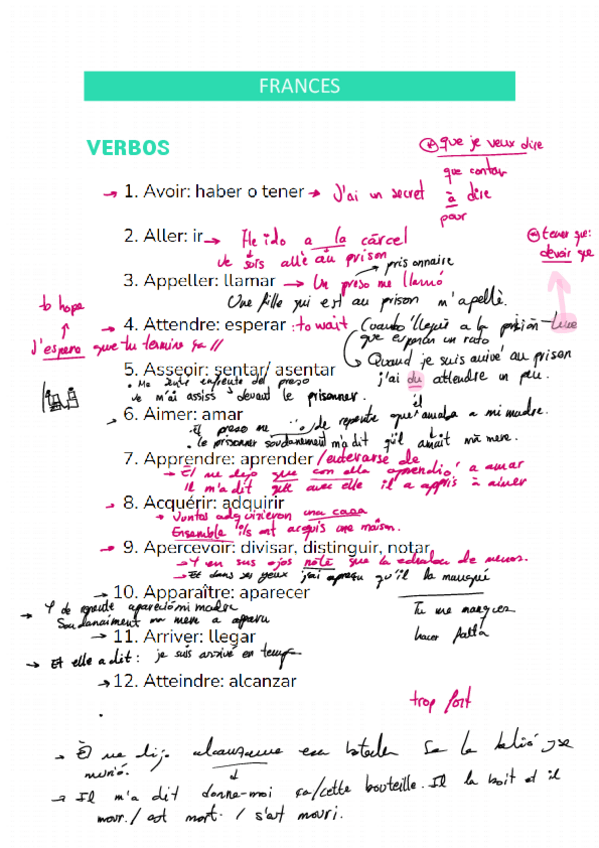 FRANCES
VERBOS
que je veux dire
que contar
→ 1. Avoir: haber o tener → J'ai un secret à dire
pour
2. Aller: ir → He ido a la cárcel
Je suis allé au prison
tener que:
devoir que
→ prisonnaire
3. Appeller: llamar → Un preso me llamó
Une fille qui est au prison m'apellé.
to hope
→ 4. Attendre: esperar: to wait (Cuando llegué a la prisión tuve
que esperar un rato
J'espero que tu termine ça //
Quand je suis arrivé au prison
j'ai du attendre un peu.
5. Asseoir: sentar/ asentar
• Me senté enfrente del preso
Je m'ai assiss devant le prisonner.
→ 6. Aimer: amar
El preso me de repente que él amaba a mi madre.
• le prisonner soudanement m'a dit qu'il amait ma mere.
7. Apprendre: aprender / enterarse de
→ Él me dijo que con ella aprendió a amar
Il m'a dit que avec elle il a appris à aimer
→ 8. Acquérir: adquirir
→ Juntos adquirieron una casa
Ensemble ils ont acquis une maison.
→ 9. Apercevoir: divisar, distinguir, notar
→ Y en sus ojos noté que la echaba de menos.
→ Et dans ses yeux j'ai aperçu qu'il la manqué
→ 10. Apparaître: aparecer
→ Y de repente apareció mi madre
Soudanaiment ma mere a aparu
Tu me manques
hacer falta
→ 11. Arriver: llegar
→ Et elle a dit: je suis arrivé en temps
→ 12. Atteindre: alcanzar
trop fort
→ Él me dijo alcanzame esa botella Se la bebió y se
murió.
→ Il m'a dit donne-moi ça/cette bouteille. Il la boit et il
mour. / est mort. / s'est mouri.